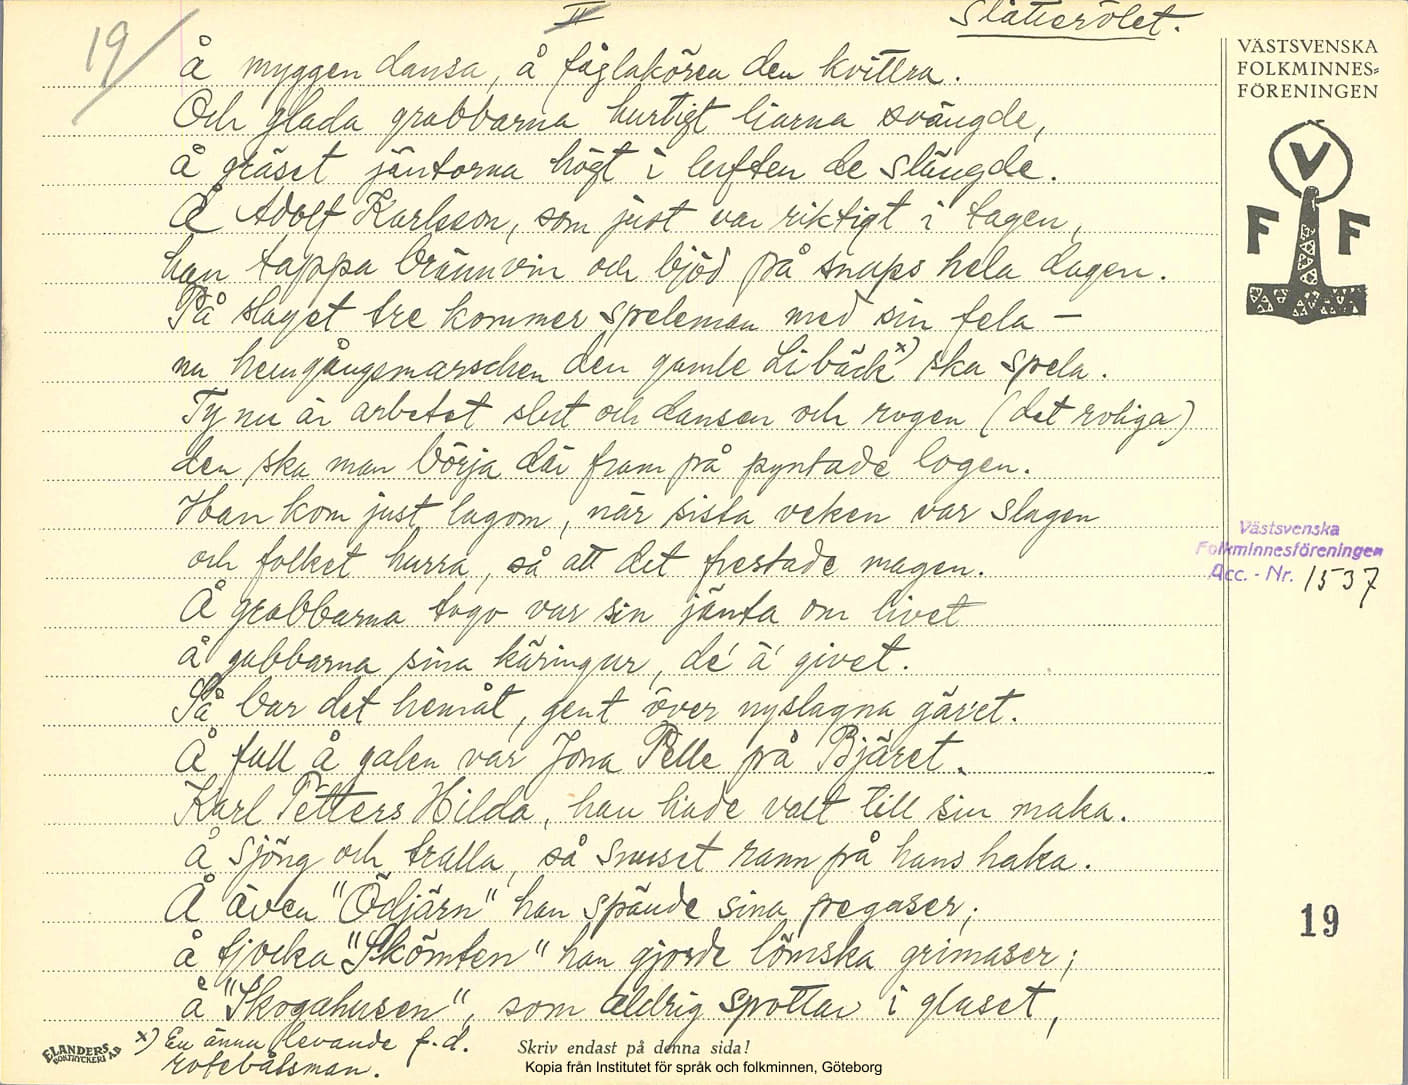 19
II
Slåtterölet.
Å myggen dansa, å fåglakören den kvittra.
Och glada grabbarna hurtigt liarna svängde,
å gräset jäntorna högt i luften de slängde.
Å Adolf Karlsson, som just var riktigt i tagen,
han tappa brännvin och bjöd på snaps hela dagen.
På slaget tre kommer speleman med sin fela –
nu hemgångsmarschen den gamle Libäck x) ska spela.
Ty nu är arbetet slut och dansen och rogen (det roliga)
den ska man börja där fram på pyntade logen.
Han kom just lagom, när sista veken var slagen
och folket hurra, så att det frestade magen.
Å grabbarna togo var sin jänta om livet
å gubbarna sina käringar, de' ä' givet.
Så bar det hemåt, gent över nyslagna gär'et.
Å full å galen var Jona Pelle på Bjäret.
Karl Petters Hilda, han hade valt till sin maka.
å sjöng och tralla, så snuset rann på hans haka.
Å även "Ödjärn" han spände sina pegaser;
å tjocka "Skömten" han gjorde lömska grimaser;
å "Skogahusen", som aldrig spottar i glaset,
x) En ännu levande f.d.
rotebåtsman.
VÄSTSVENSKA
FOLKMINNES=
FÖRENINGEN
V
F F
Västsvenska
Folkminnesföreningen
Acc. - Nr. 1537
19
ELANDERS
BOKTRYCKERI AB
Skriv endast på denna sida!
Kopia från Institutet för språk och folkminnen, Göteborg